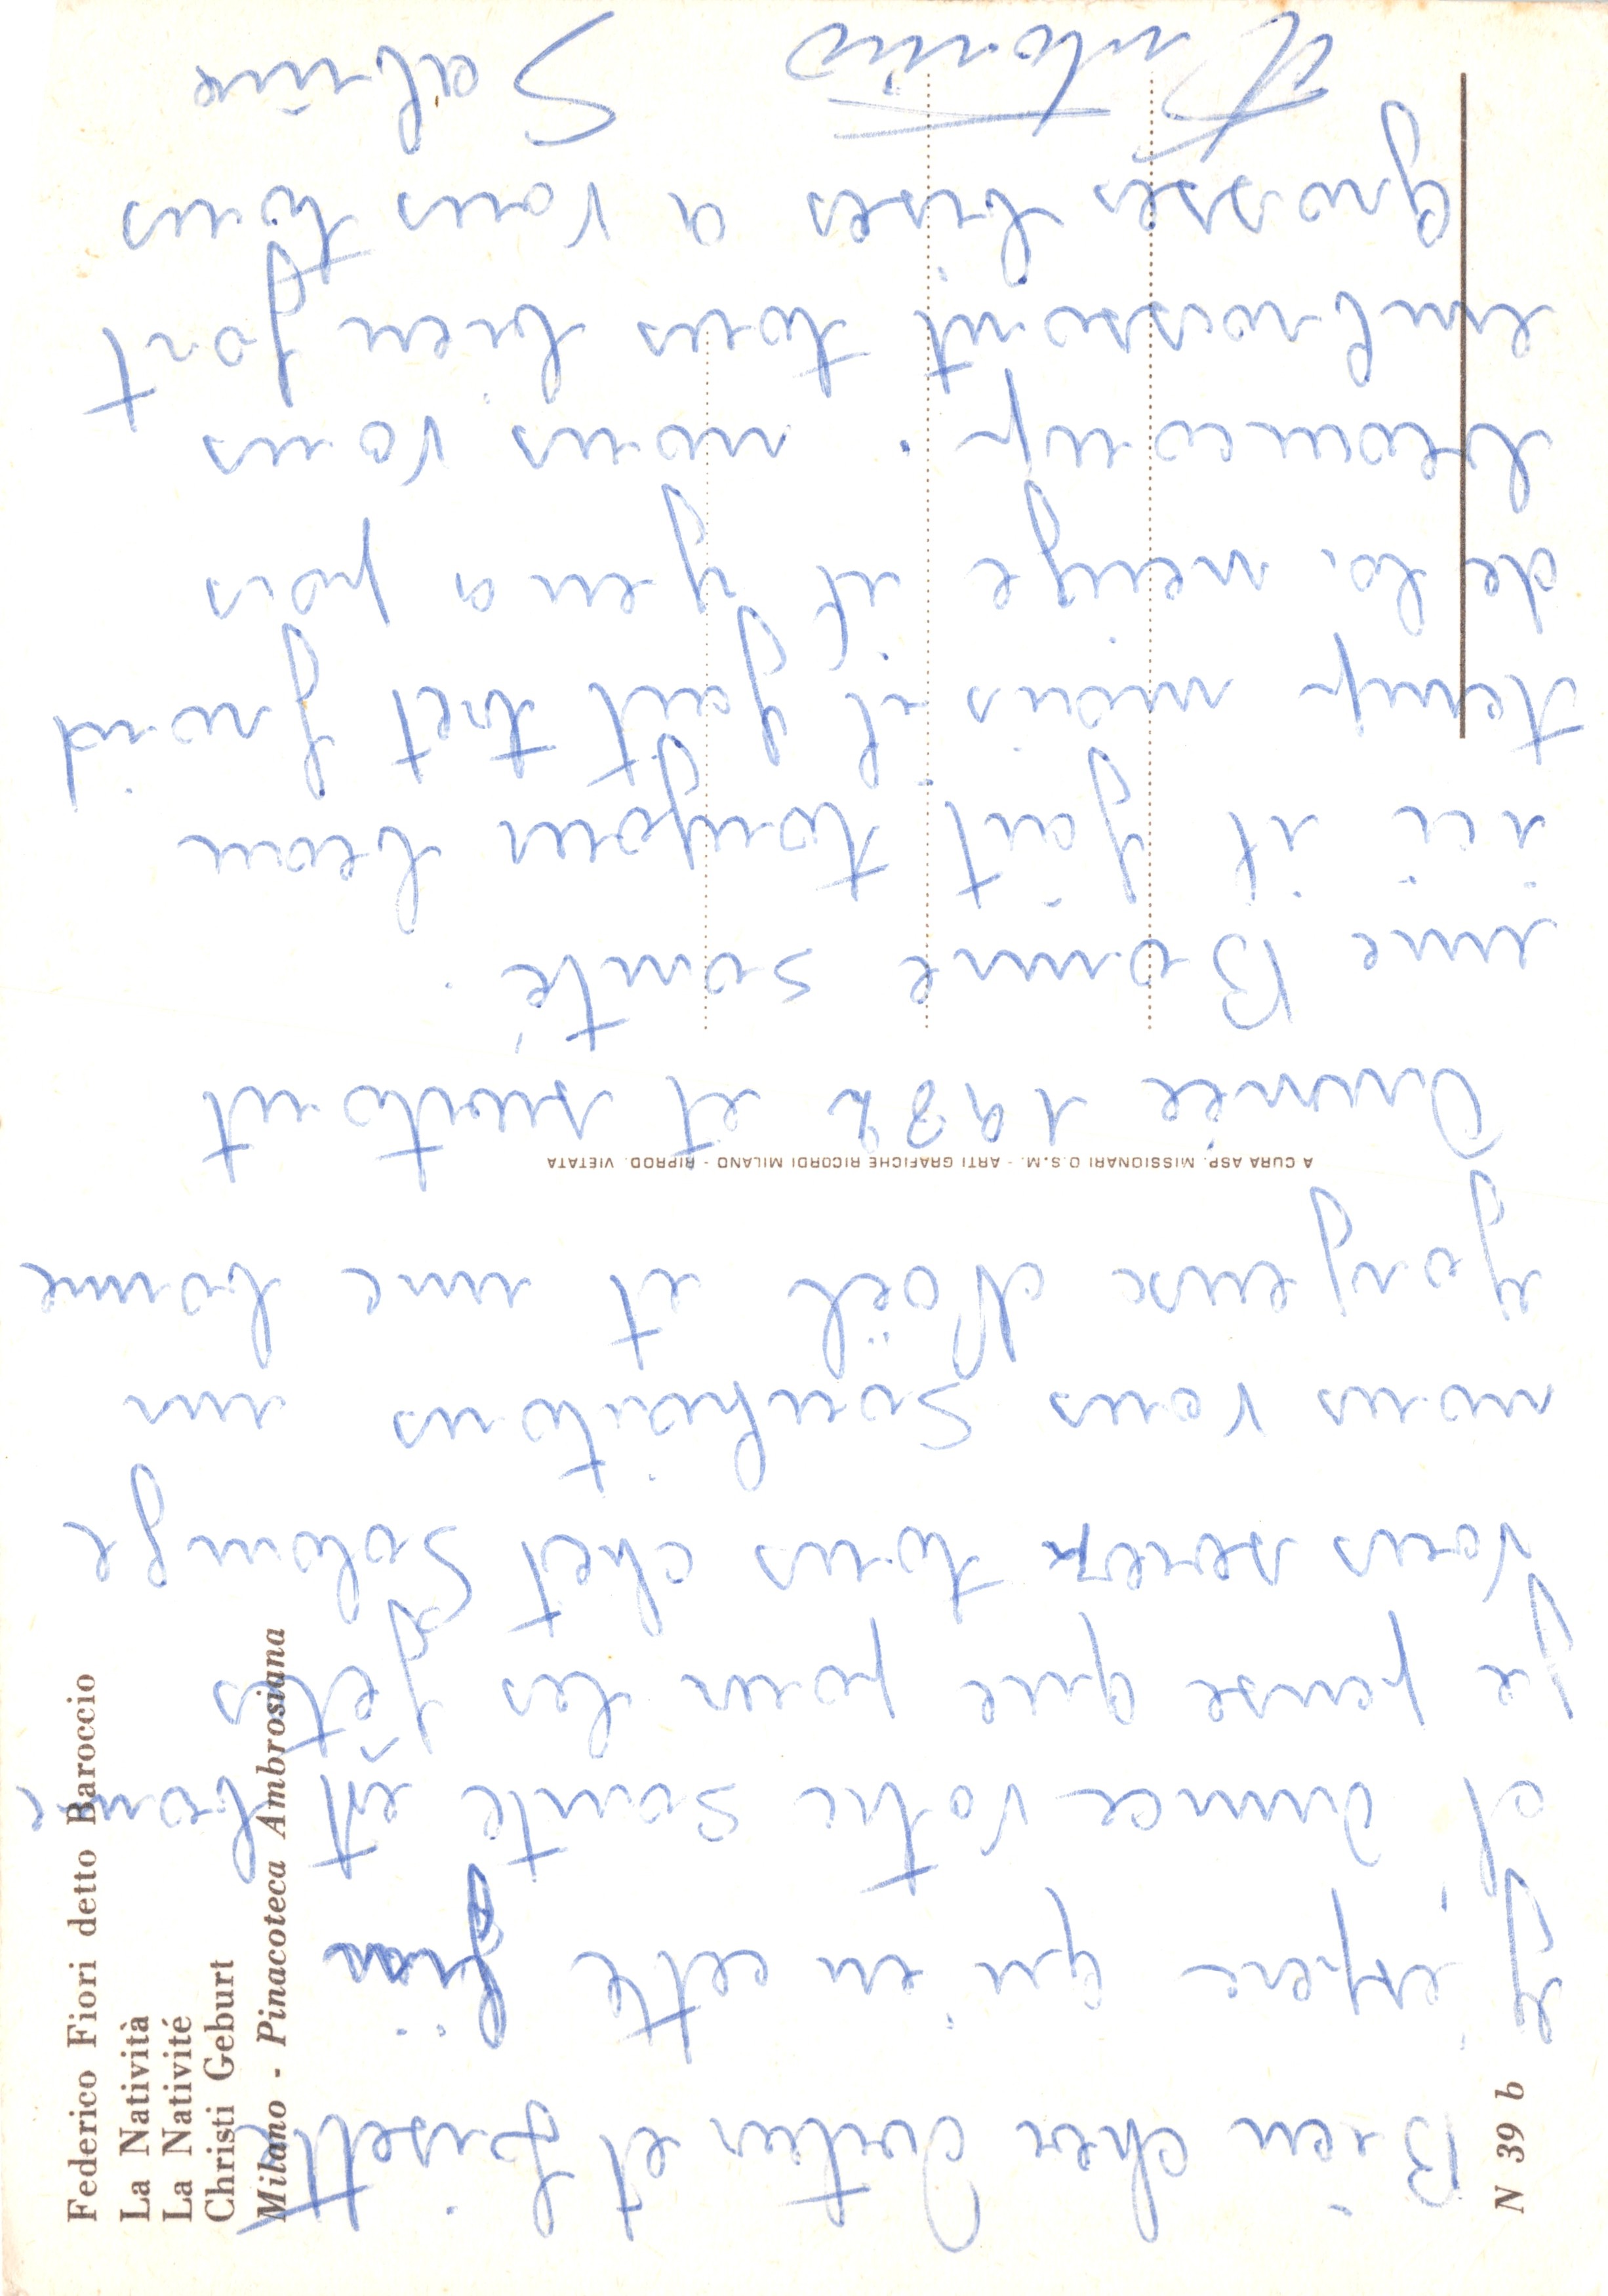 Bien cher Justin et Lisette
J'espère qu'en cette fin
d'année votre santé est bonne
Je pense que pour les fêtes
vous serez tous chet Solange
nous vous Souhaitons un
yoyeuse Noël et une bonne
année 1982 et surtout
une Bonne santé.
ici it fait toujour beau
temp mais il fait tret froid
de la neige it y en a pas
beaucoup. nous vous
embrassont tous bien fort
grosses bises a vous tous
Antonio Sabine
Federico Fiori detto Baroccio
La Natività
La Nativité
Christi Geburt
Milano - Pinacoteca Ambrosiana
N 39 b
A CURA ASP. MISSIONARI O.S.M. - ARTI GRAFICHE RICORDI MILANO - RIPROD. VIETATA